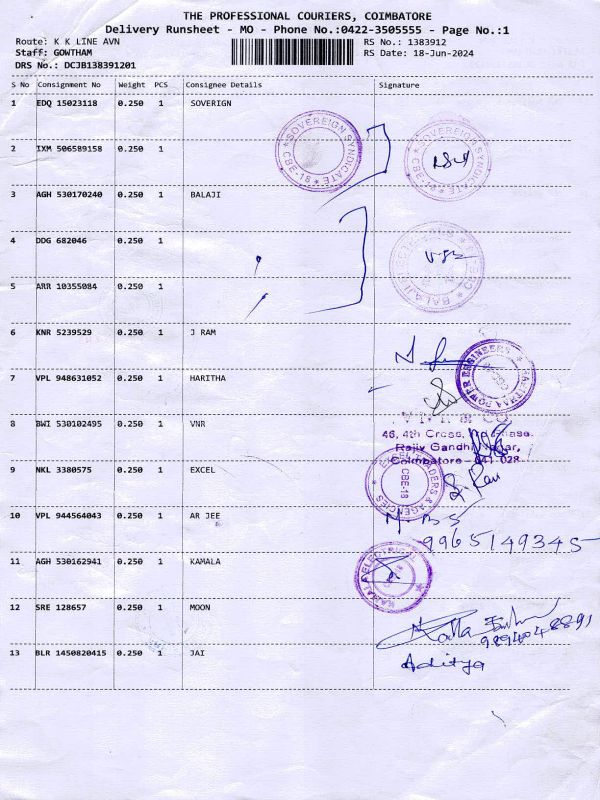 THE PROFESSIONAL COURIERS, COIMBATORE
Delivery Runsheet - MO - Phone No.:0422-3505555 - Page No.:1
Route: K K LINE AVN
RS No.: 1383912
Staff: GOWTHAM
RS Date: 18-Jun-2024
DRS No.: DCJB138391201
S No Consignment No Weight PCS Consignee Details Signature
1 EDQ 15023118 0.250 1 SOVERIGN
SOVEREIGN SYNDICATE
CBE-18
2 IXM 506589158 0.250 1
SOVEREIGN SYNDICATE
CBE-18
3 AGH 530170240 0.250 1 BALAJI
4 DDG 682046 0.250 1
BALAJI
5 ARR 10355084 0.250 1
6 KNR 5239529 0.250 1 J RAM
POWER ENGINEERS
7 VPL 948631052 0.250 1 HARITHA
8 BWI 530102495 0.250 1 VNR
46, 4th Cross,
Rajiv Gandhi Nagar,
Coimbatore - 641 028
9 NKL 3380575 0.250 1 EXCEL
& AGENCIES
CBE-18
10 VPL 944564043 0.250 1 AR JEE
9965149345
11 AGH 530162941 0.250 1 KAMALA
KAMALA ELECTRICAL
12 SRE 128657 0.250 1 MOON
9894048891
13 BLR 1450820415 0.250 1 JAI
Aditya